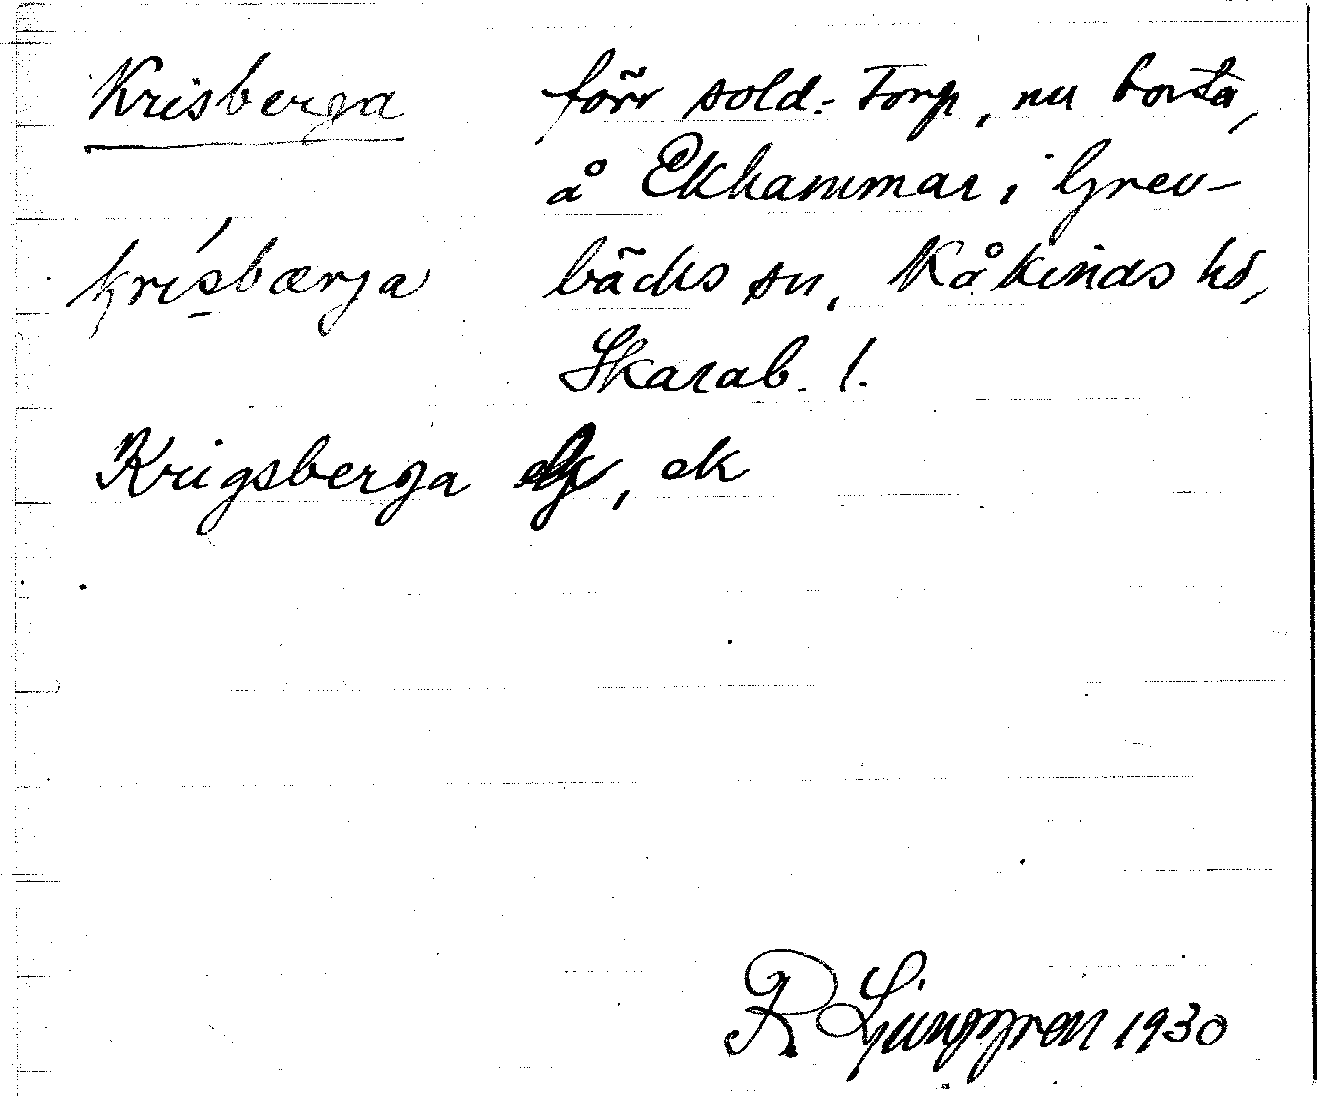 Krisberga förr sold. Torp, nu borta,
å Ekhammar i Grev-
krísbærja bäcks sn, Kåkinds hd,
Skarab. l.
Krigsberga , ek
R Ljunggren 1930